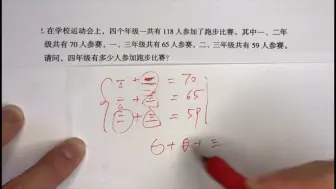 1. 在学校运动会上，四个年级一共有 118 人参加了跑步比赛，其中一、二年
级共有 70 人参赛，一、三年级共有 65 人参赛，二、三年级共有 59 人参赛。
请问，四年级有多少人参加跑步比赛？
一 + 二 = 70
一 + 三 = 65
二 + 三 = 59